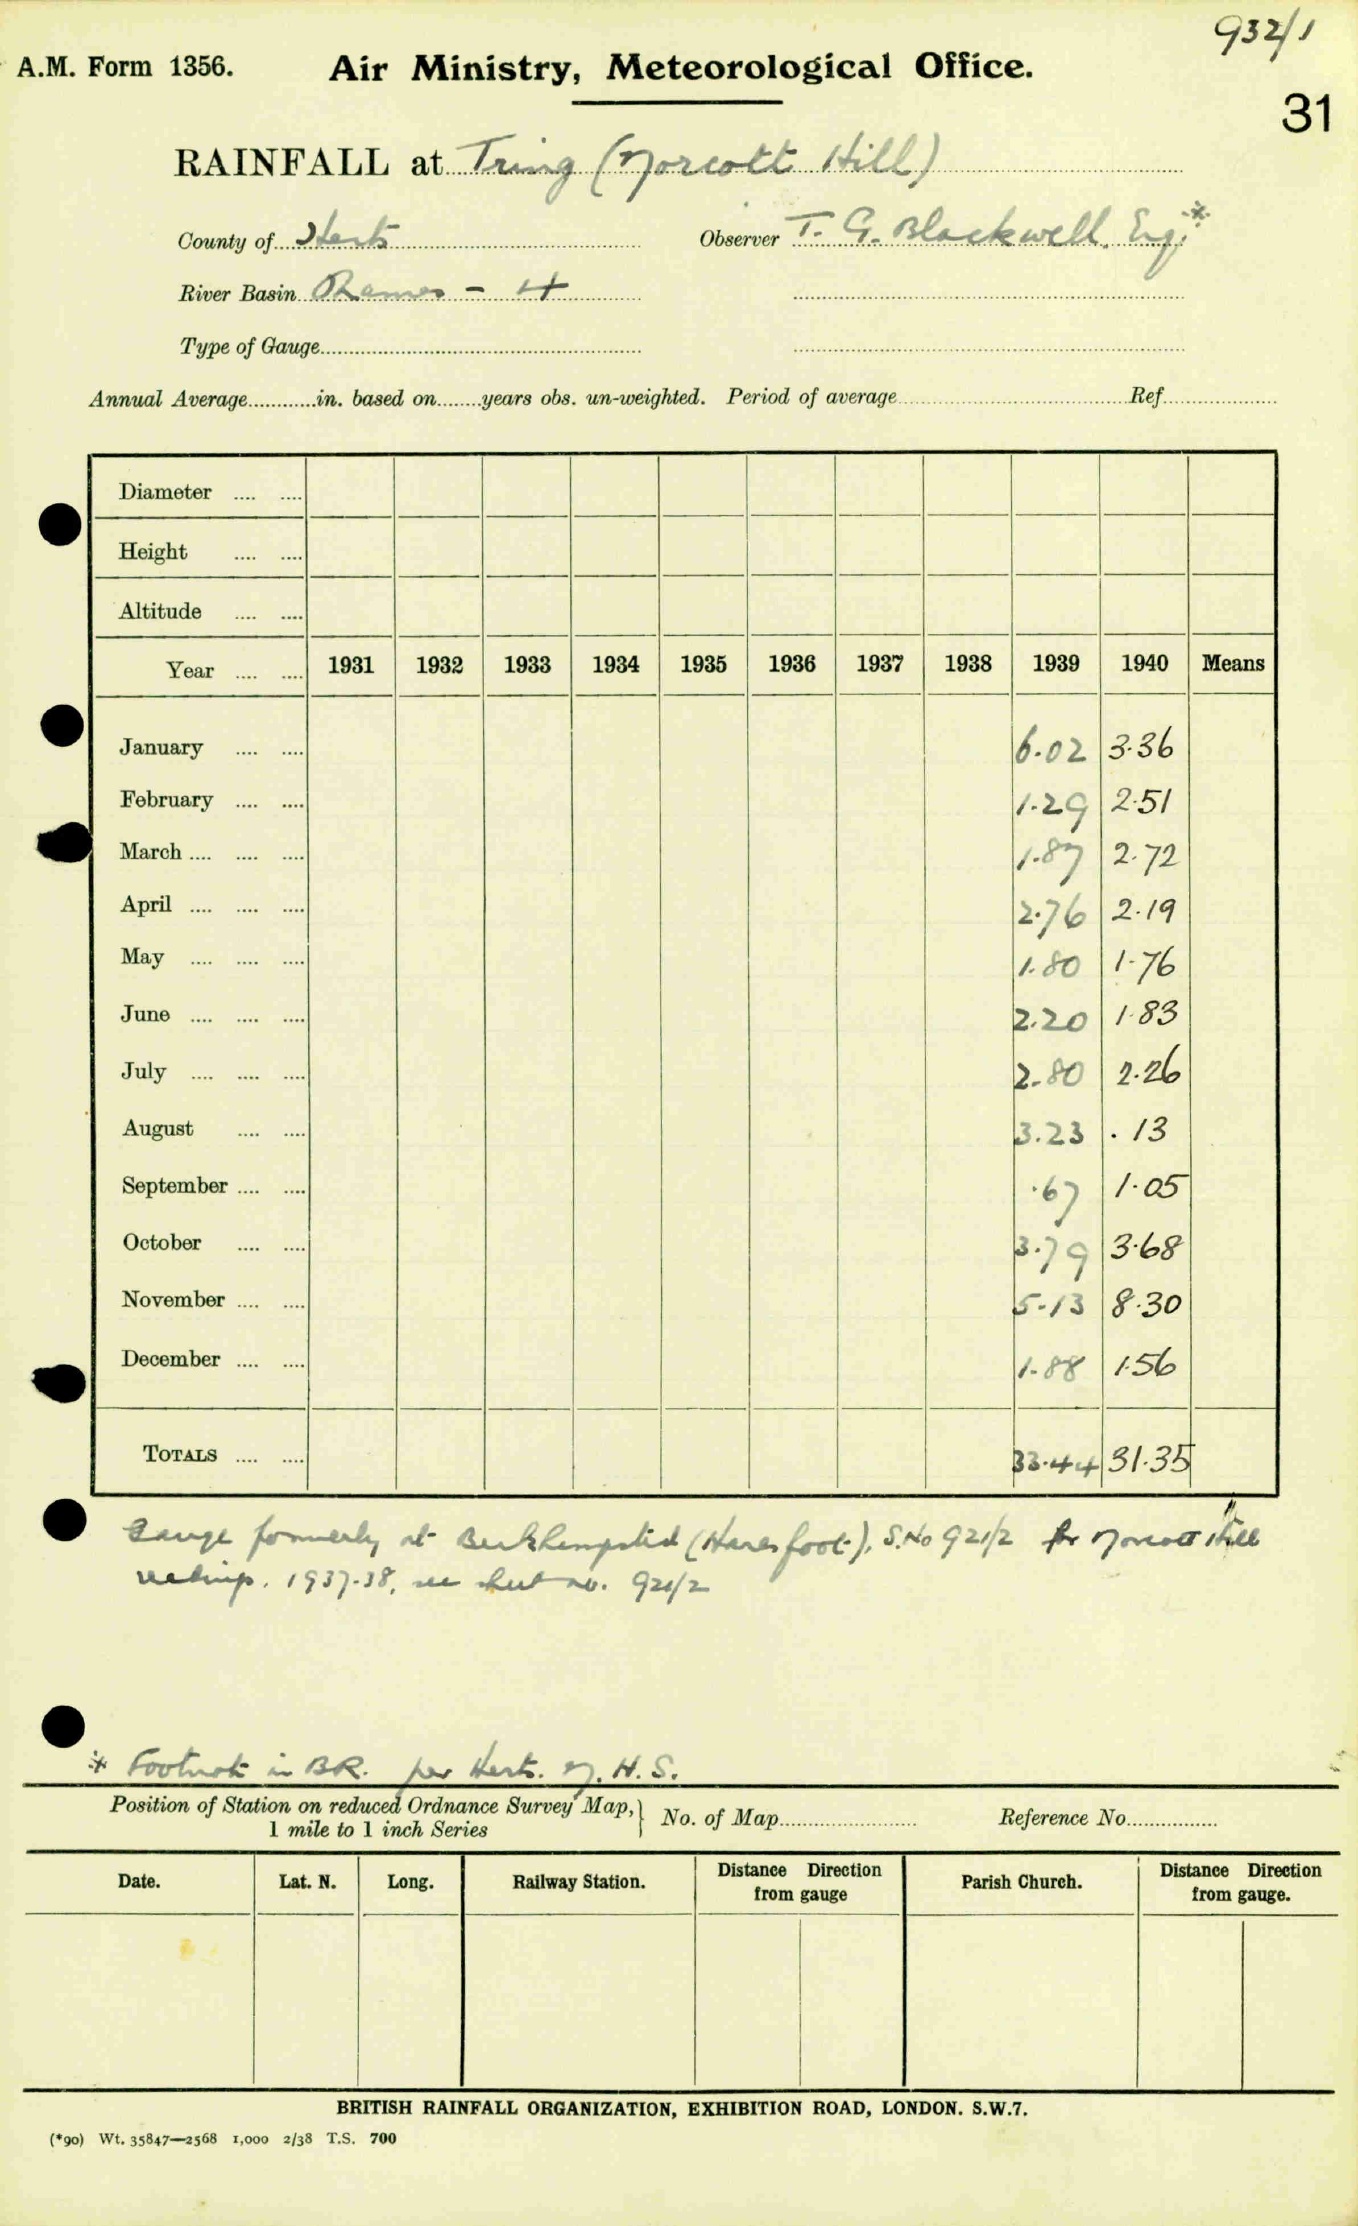 932/1
A.M. Form 1356.
Air Ministry, Meteorological Office.
31
RAINFALL at Tring (Norcott Hill)
County of Herts Observer T. G. Blackwell. Esq. *
River Basin Thames - 4
Type of Gauge
Annual Average in. based on years obs. un-weighted. Period of average Ref.
Diameter
Height
Altitude
Year 1931 1932 1933 1934 1935 1936 1937 1938 1939 1940 Means
January 6.02 3.36
February 1.29 2.51
March 1.87 2.72
April 2.76 2.19
May 1.80 1.76
June 2.20 1.83
July 2.80 2.26
August 3.23 .13
September .67 1.05
October 3.79 3.68
November 5.13 8.30
December 1.88 1.56
TOTALS 33.44 31.35
Gauge formerly at Berkhampstid (Haresfoot), S.No 921/2 for Norcott Hill
readings. 1937-38, see sheet no. 921/2
* Footnote in BR. per Herts. N.H.S.
Position of Station on reduced Ordnance Survey Map, } No. of Map Reference No.
1 mile to 1 inch Series
Date. Lat. N. Long. Railway Station. Distance Direction from gauge Parish Church. Distance Direction from gauge.
BRITISH RAINFALL ORGANIZATION, EXHIBITION ROAD, LONDON. S.W.7.
(*90) Wt. 35847—2568 1,000 2/38 T.S. 700